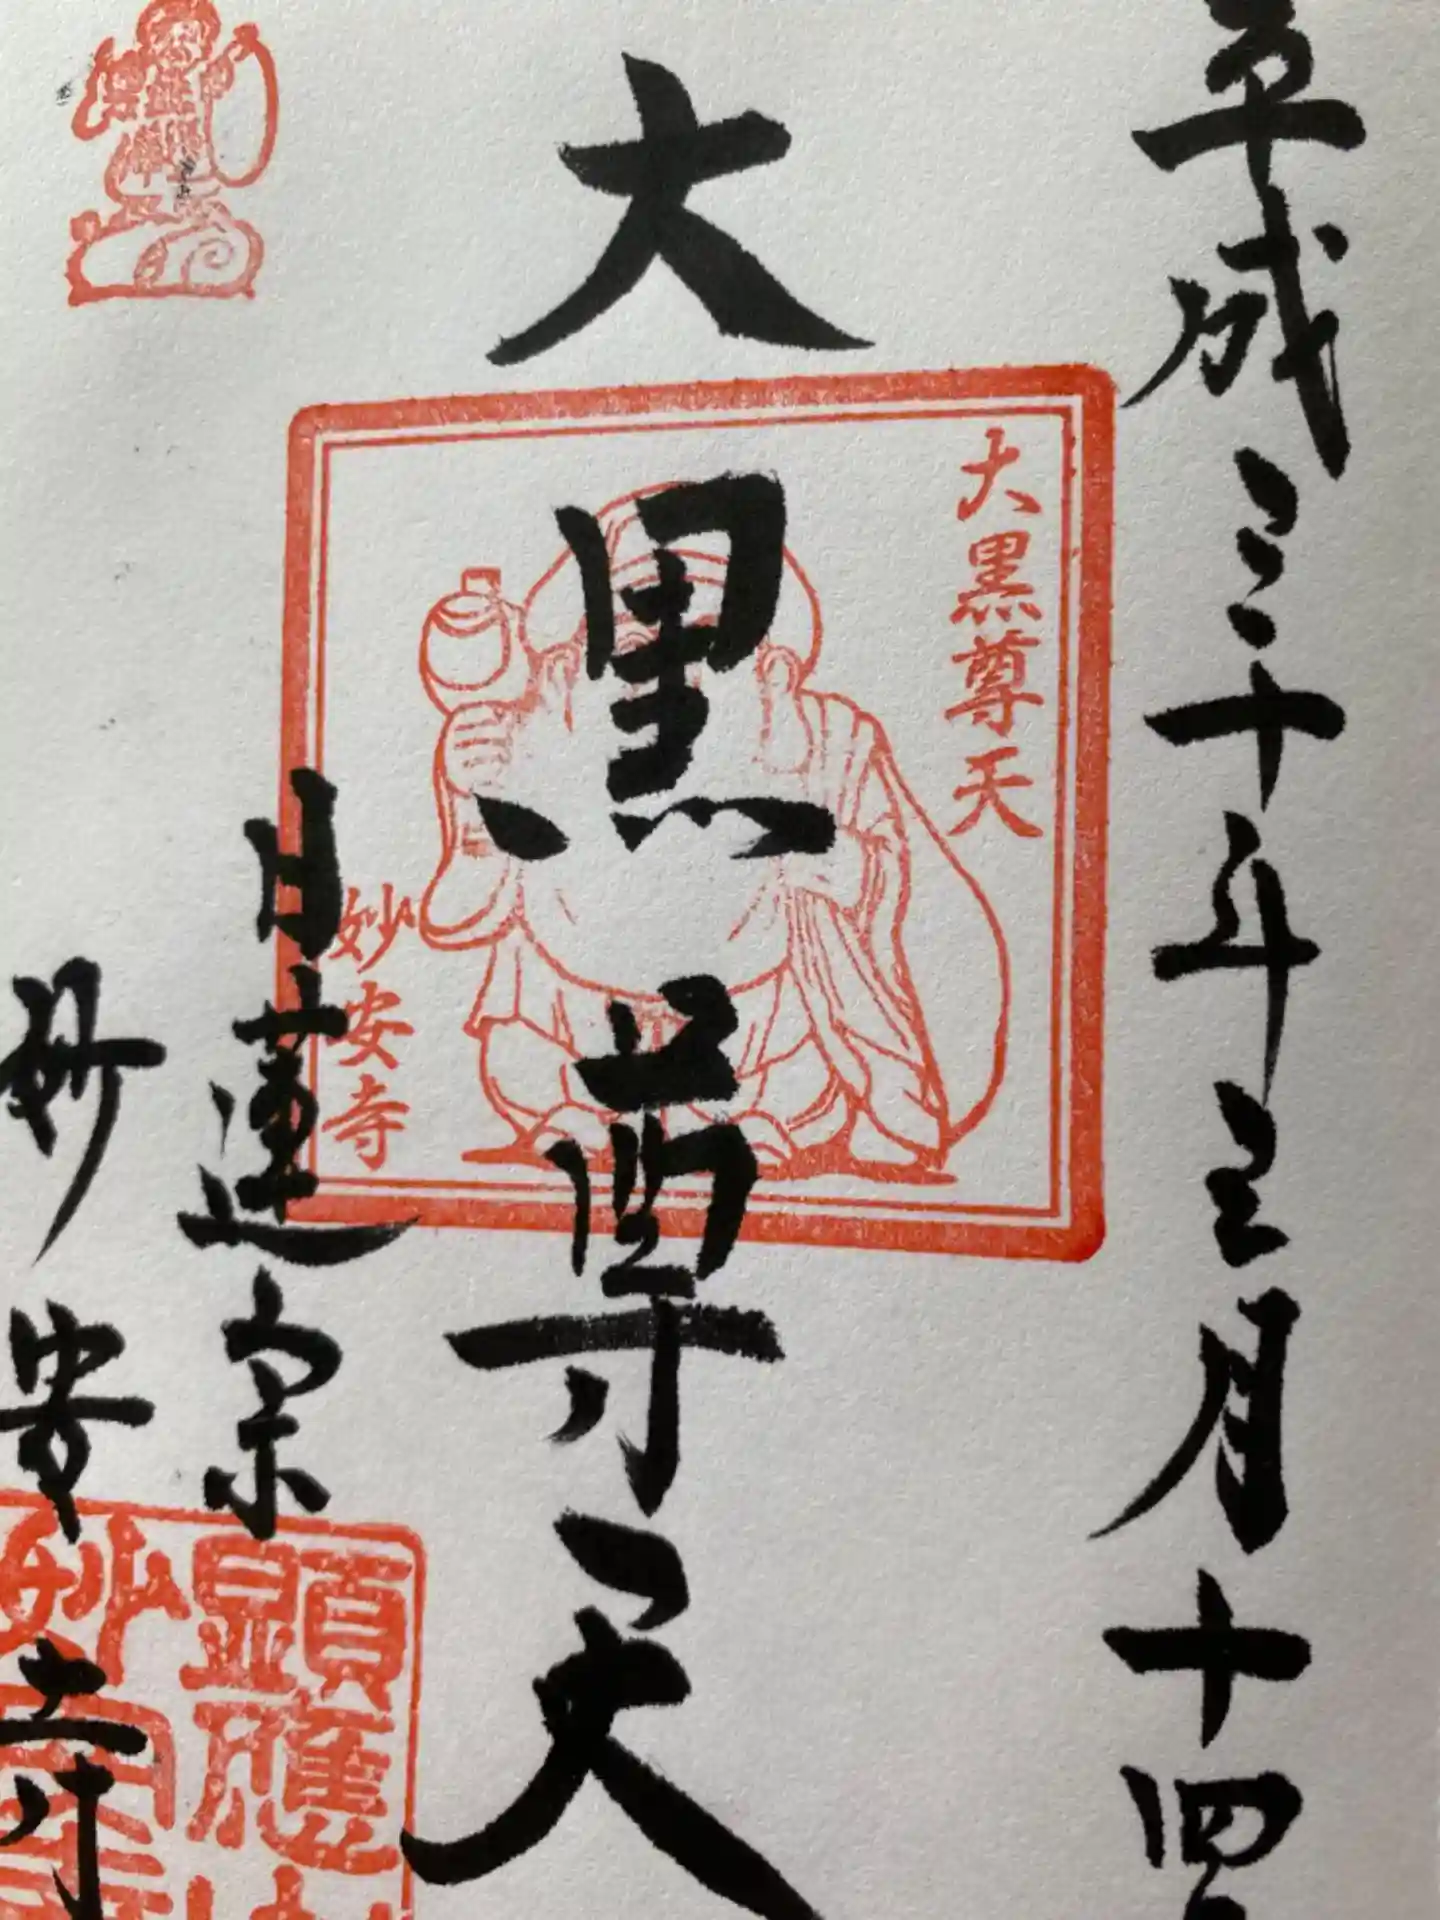 平成三十年三月十四
大黒尊天
大黒尊天
妙安寺
日蓮宗
妙安寺
顯應
妙安